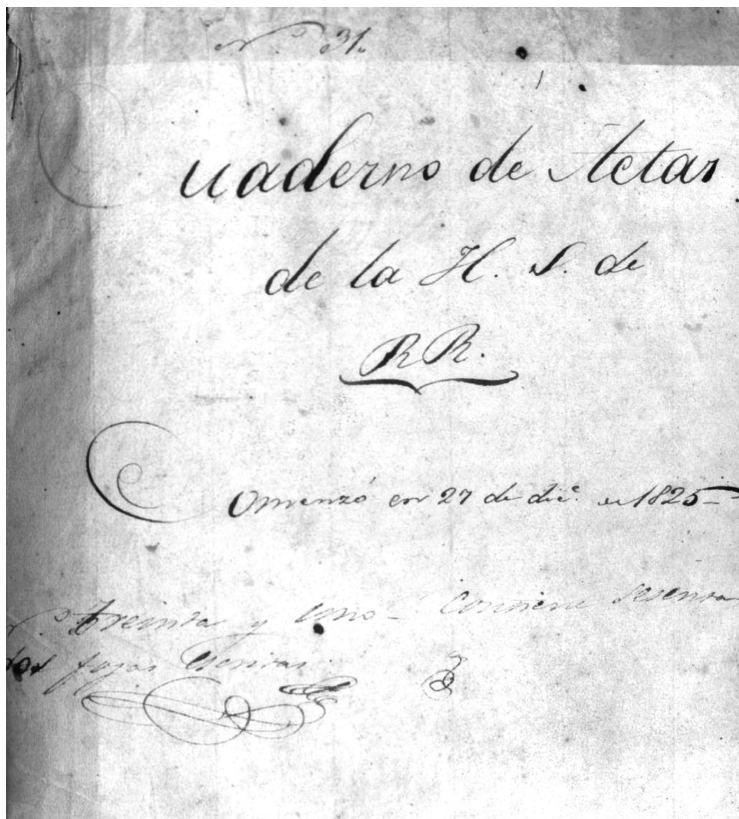 N.º 31.
Cuaderno de Actas
de la H. S. de
RR.
Comenzó en 27 de dic.e de 1825
N.º treinta y uno - Contiene sesenta
dos fojas escritas